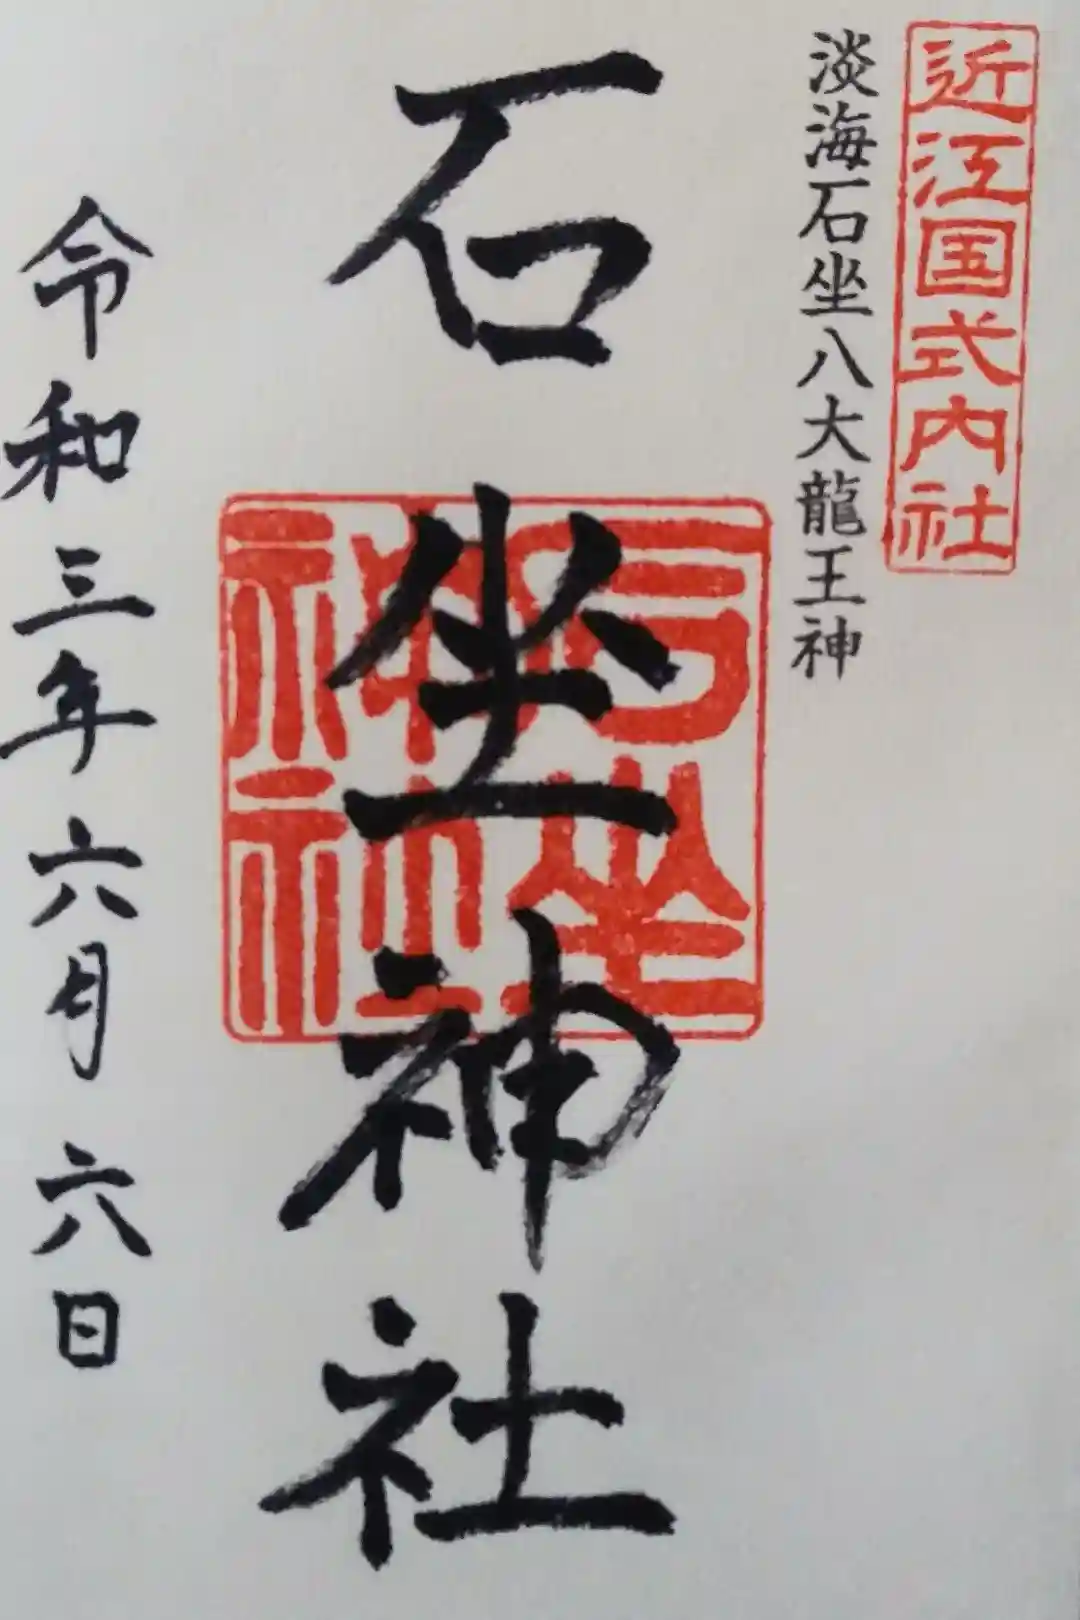 近江国式内社
淡海石坐八大龍王神
石坐神社
石坐神社
令和三年六月六日